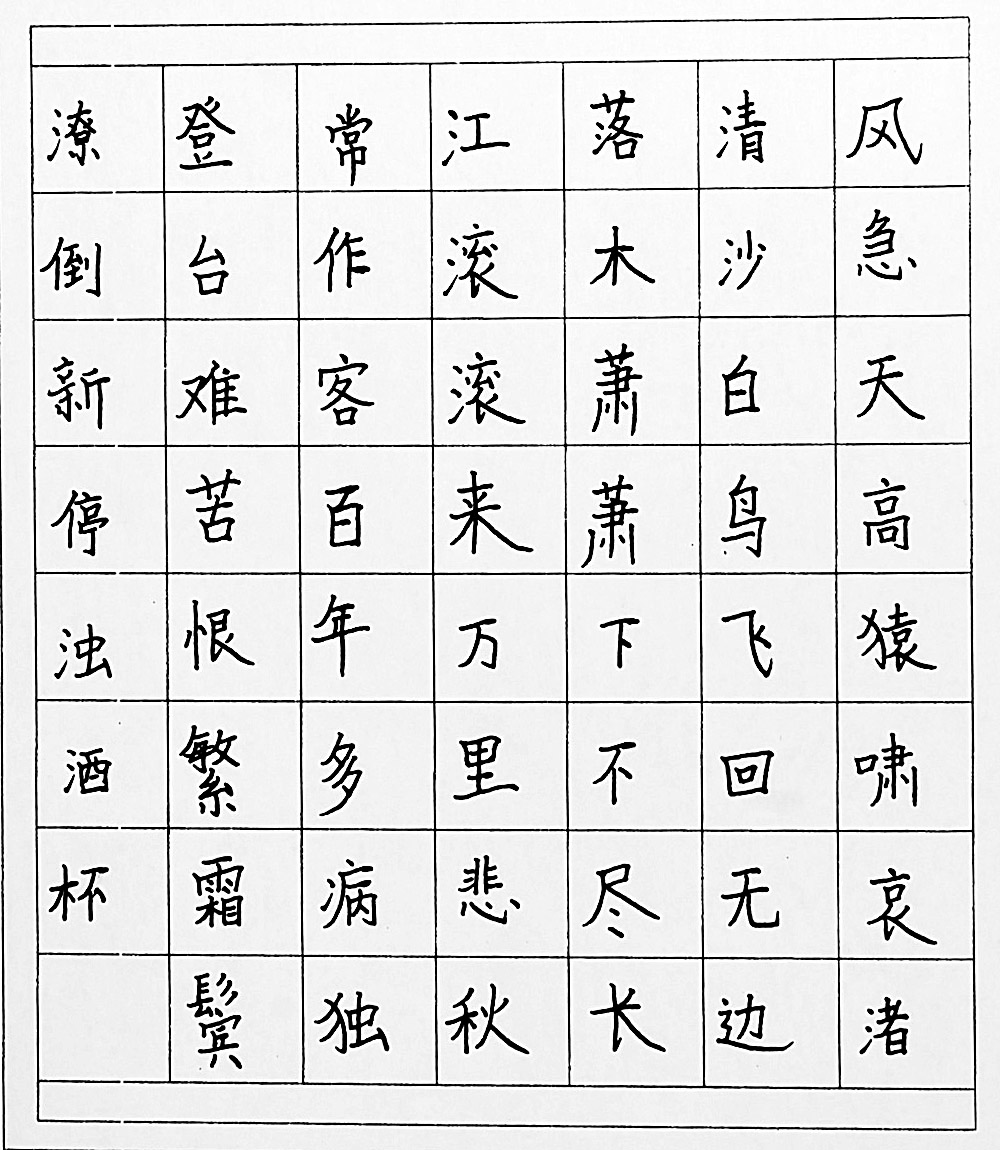 风急天高猿啸哀渚
清沙白鸟飞回无边
落木萧萧下不尽长
江滚滚来万里悲秋
常作客百年多病独
登台难苦恨繁霜鬓
潦倒新停浊酒杯